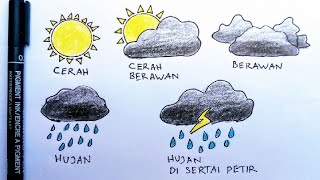 CERAH
CERAH
BERAWAN
BERAWAN
HUJAN
HUJAN
DI SERTAI PETIR
PIGMENT INK/ENCRE A PIGMENT